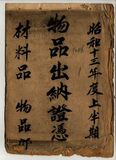 昭和十三年度上半期
物品出納證憑
材料品 物品所